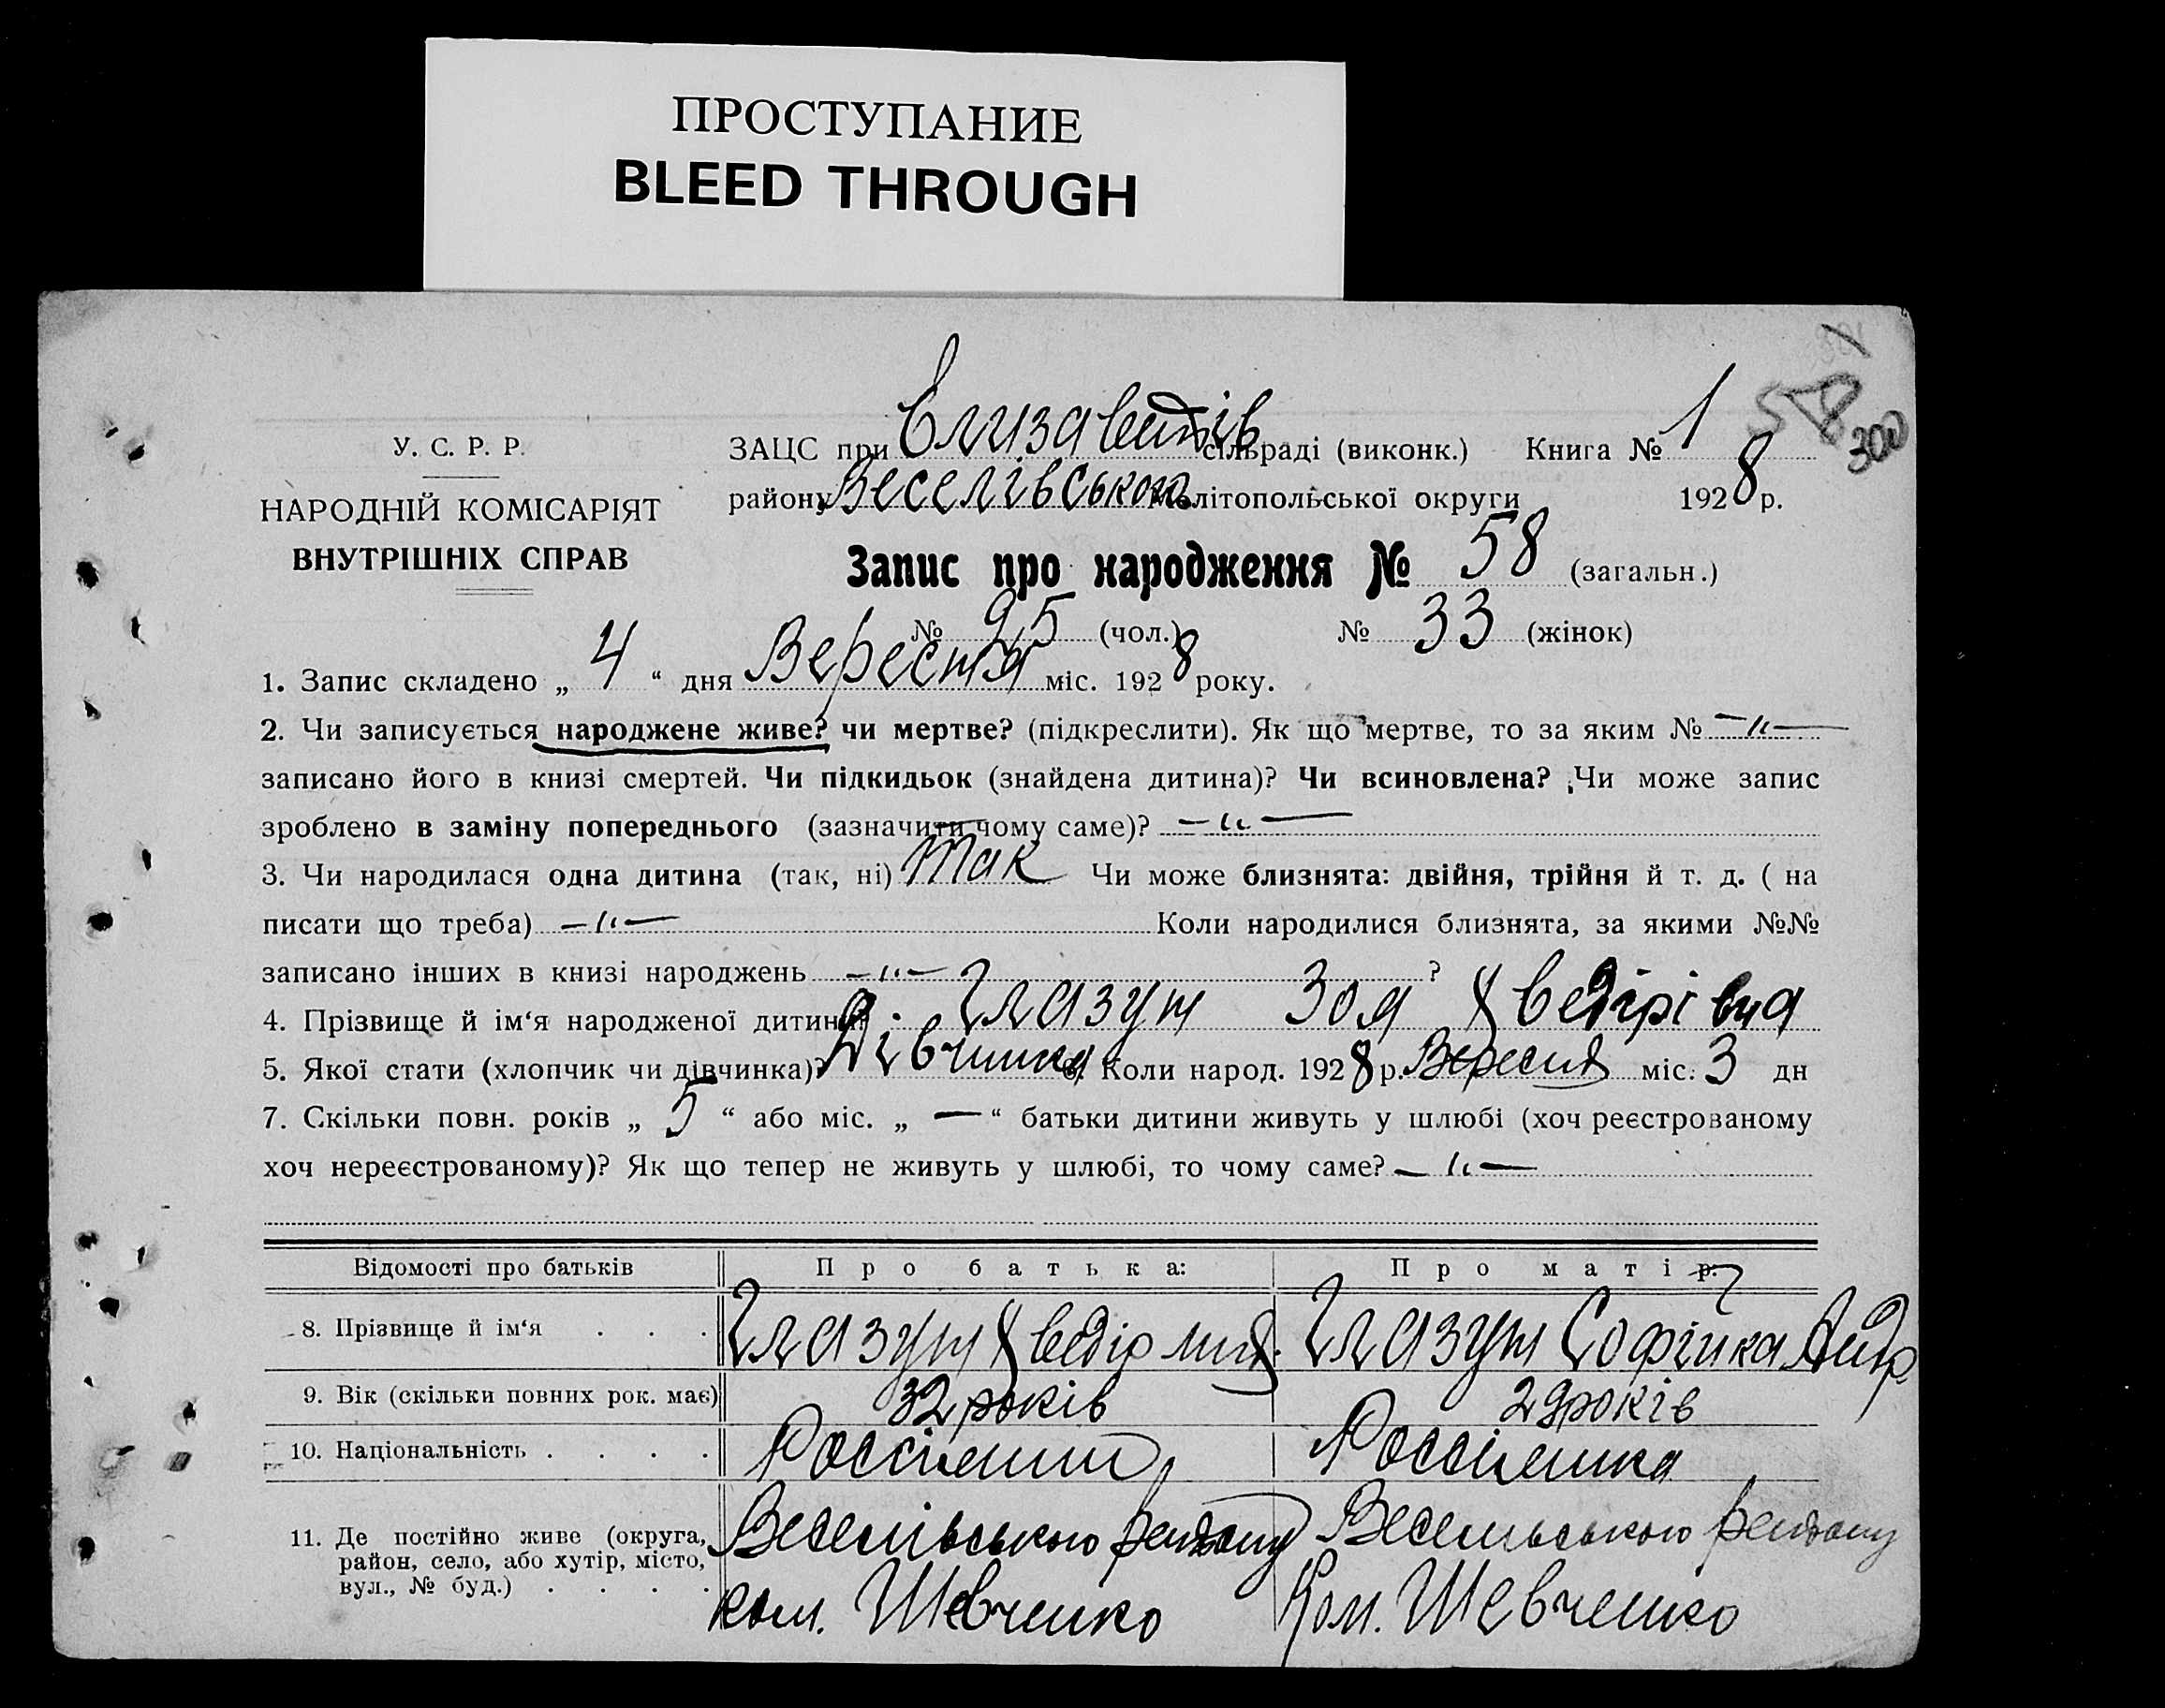 ПРОСТУПАНИЕ
BLEED THROUGH
У. С. Р. Р.
НАРОДНІЙ КОМІСАРІЯТ
ВНУТРІШНІХ СПРАВ
ЗАЦС при Елизаветів сільраді (виконк.) Книга № 1
58
300
району Веселівського Мелітопольської округи 1928 р.
Запис про народження № 58 (загальн.)
№ 25 (чол.) № 33 (жінок)
1. Запис складено „ 4 “ дня Верестя міс. 1928 року.
2. Чи записується народжене живе? чи мертве? (підкреслити). Як що мертве, то за яким № —"—
записано його в книзі смертей. Чи підкидьок (знайдена дитина)? Чи всиновлена? Чи може запис
зроблено в заміну попереднього (зазначити чому саме)? —"—
3. Чи народилася одна дитина (так, ні) Так Чи може близнята: двійня, трійня й т. д. ( на
писати що треба) —"— Коли народилися близнята, за якими №№
записано інших в книзі народжень —"— ?
4. Прізвище й ім‘я народженої дитини: Глазун Зоя Хведірівна
5. Якої стати (хлопчик чи дівчинка)? Дівчинка 6. Коли народ. 1928 р. Вересня міс. 3 дн
7. Скільки повн. років „ 5 “ або міс. „ — “ батьки дитини живуть у шлюбі (хоч реєстрованому
хоч нереєстрованому)? Як що тепер не живуть у шлюбі, то чому саме? —"—
Відомості про батьків Про батька: Про матір.
8. Прізвище й ім‘я . . . Глазун Хведір Глазун Софійка Андр.
9. Вік (скільки повних рок. має) 32 років 29 років
10. Національність . . . . Россіянин Россіянка
11. Де постійно живе (округа, район, село, або хутір, місто, вул., № буд.) . . . . Веселівського району Веселівського району
ком. Шевченко Ком. Шевченко